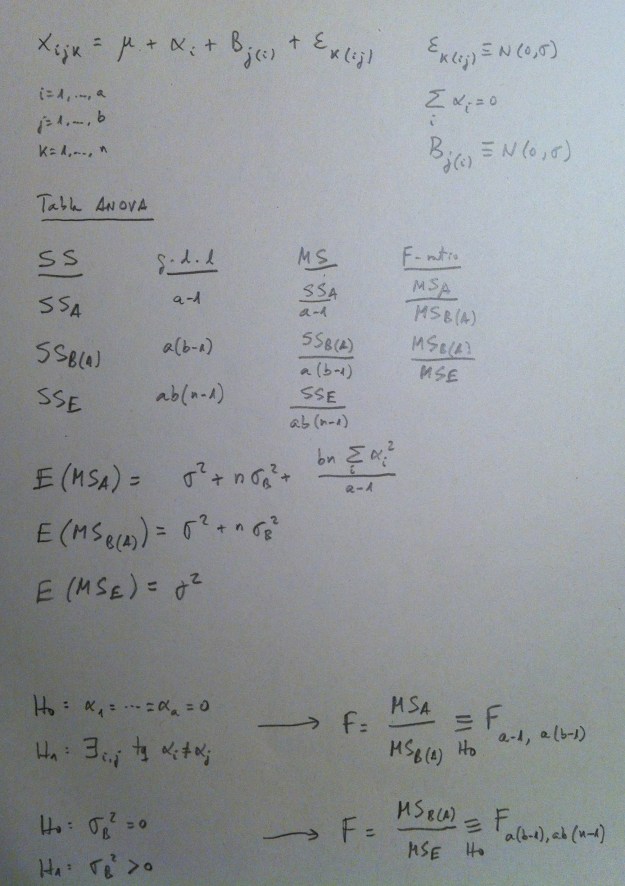 X_{ijk} = μ + α_i + B_{j(i)} + ε_{k(ij)}    ε_{k(ij)} ≡ N(0,σ)
i=1,...,a    Σ_i α_i = 0
j=1,...,b
k=1,...,n    B_{j(i)} ≡ N(0,σ)
Tabla ANOVA
SS    g.d.l    MS    F-ratio
SS_A    a-1    SS_A/(a-1)    MS_A/MS_{B(A)}
SS_{B(A)}    a(b-1)    SS_{B(A)}/(a(b-1))    MS_{B(A)}/MSE
SS_E    ab(n-1)    SS_E/(ab(n-1))
E(MS_A) = σ² + nσ_B² + (bn Σ_i α_i²)/(a-1)
E(MS_{B(A)}) = σ² + nσ_B²
E(MS_E) = σ²
H_0: α_1 = ... = α_a = 0    → F = MS_A/MS_{B(A)} ≡_{H_0} F_{a-1, a(b-1)}
H_1: ∃_{i,j} tq α_i ≠ α_j
H_0: σ_B² = 0    → F = MS_{B(A)}/MSE ≡_{H_0} F_{a(b-1), ab(n-1)}
H_1: σ_B² > 0